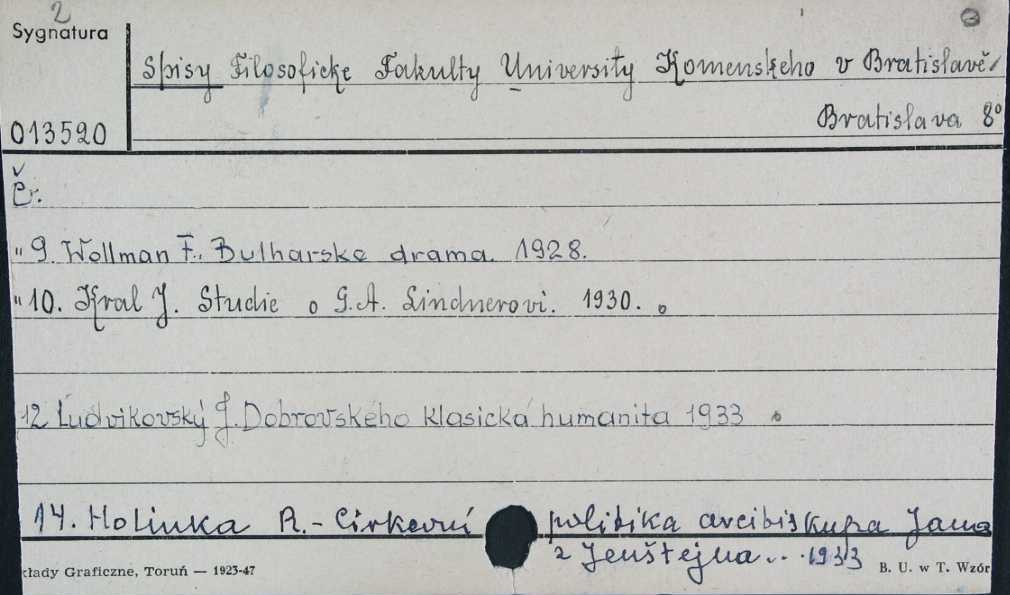 2
Sygnatura
Spisy Filosoficke Fakulty University Komenskeho v Bratislavě/
Bratislava 8°
013520
Č.
" 9. Wollman F., Bulharske drama. 1928.
" 10. Kral J. Studie o G.A. Lindnerovi. 1930.
12 Ludvikovský J. Dobrovského klasická humanita 1933
14. Holinka R. - Církevní politika arcibiskupa Jana
z Jenštejna... 1933
kłady Graficzne, Toruń — 1923-47
B. U. w T. Wzór